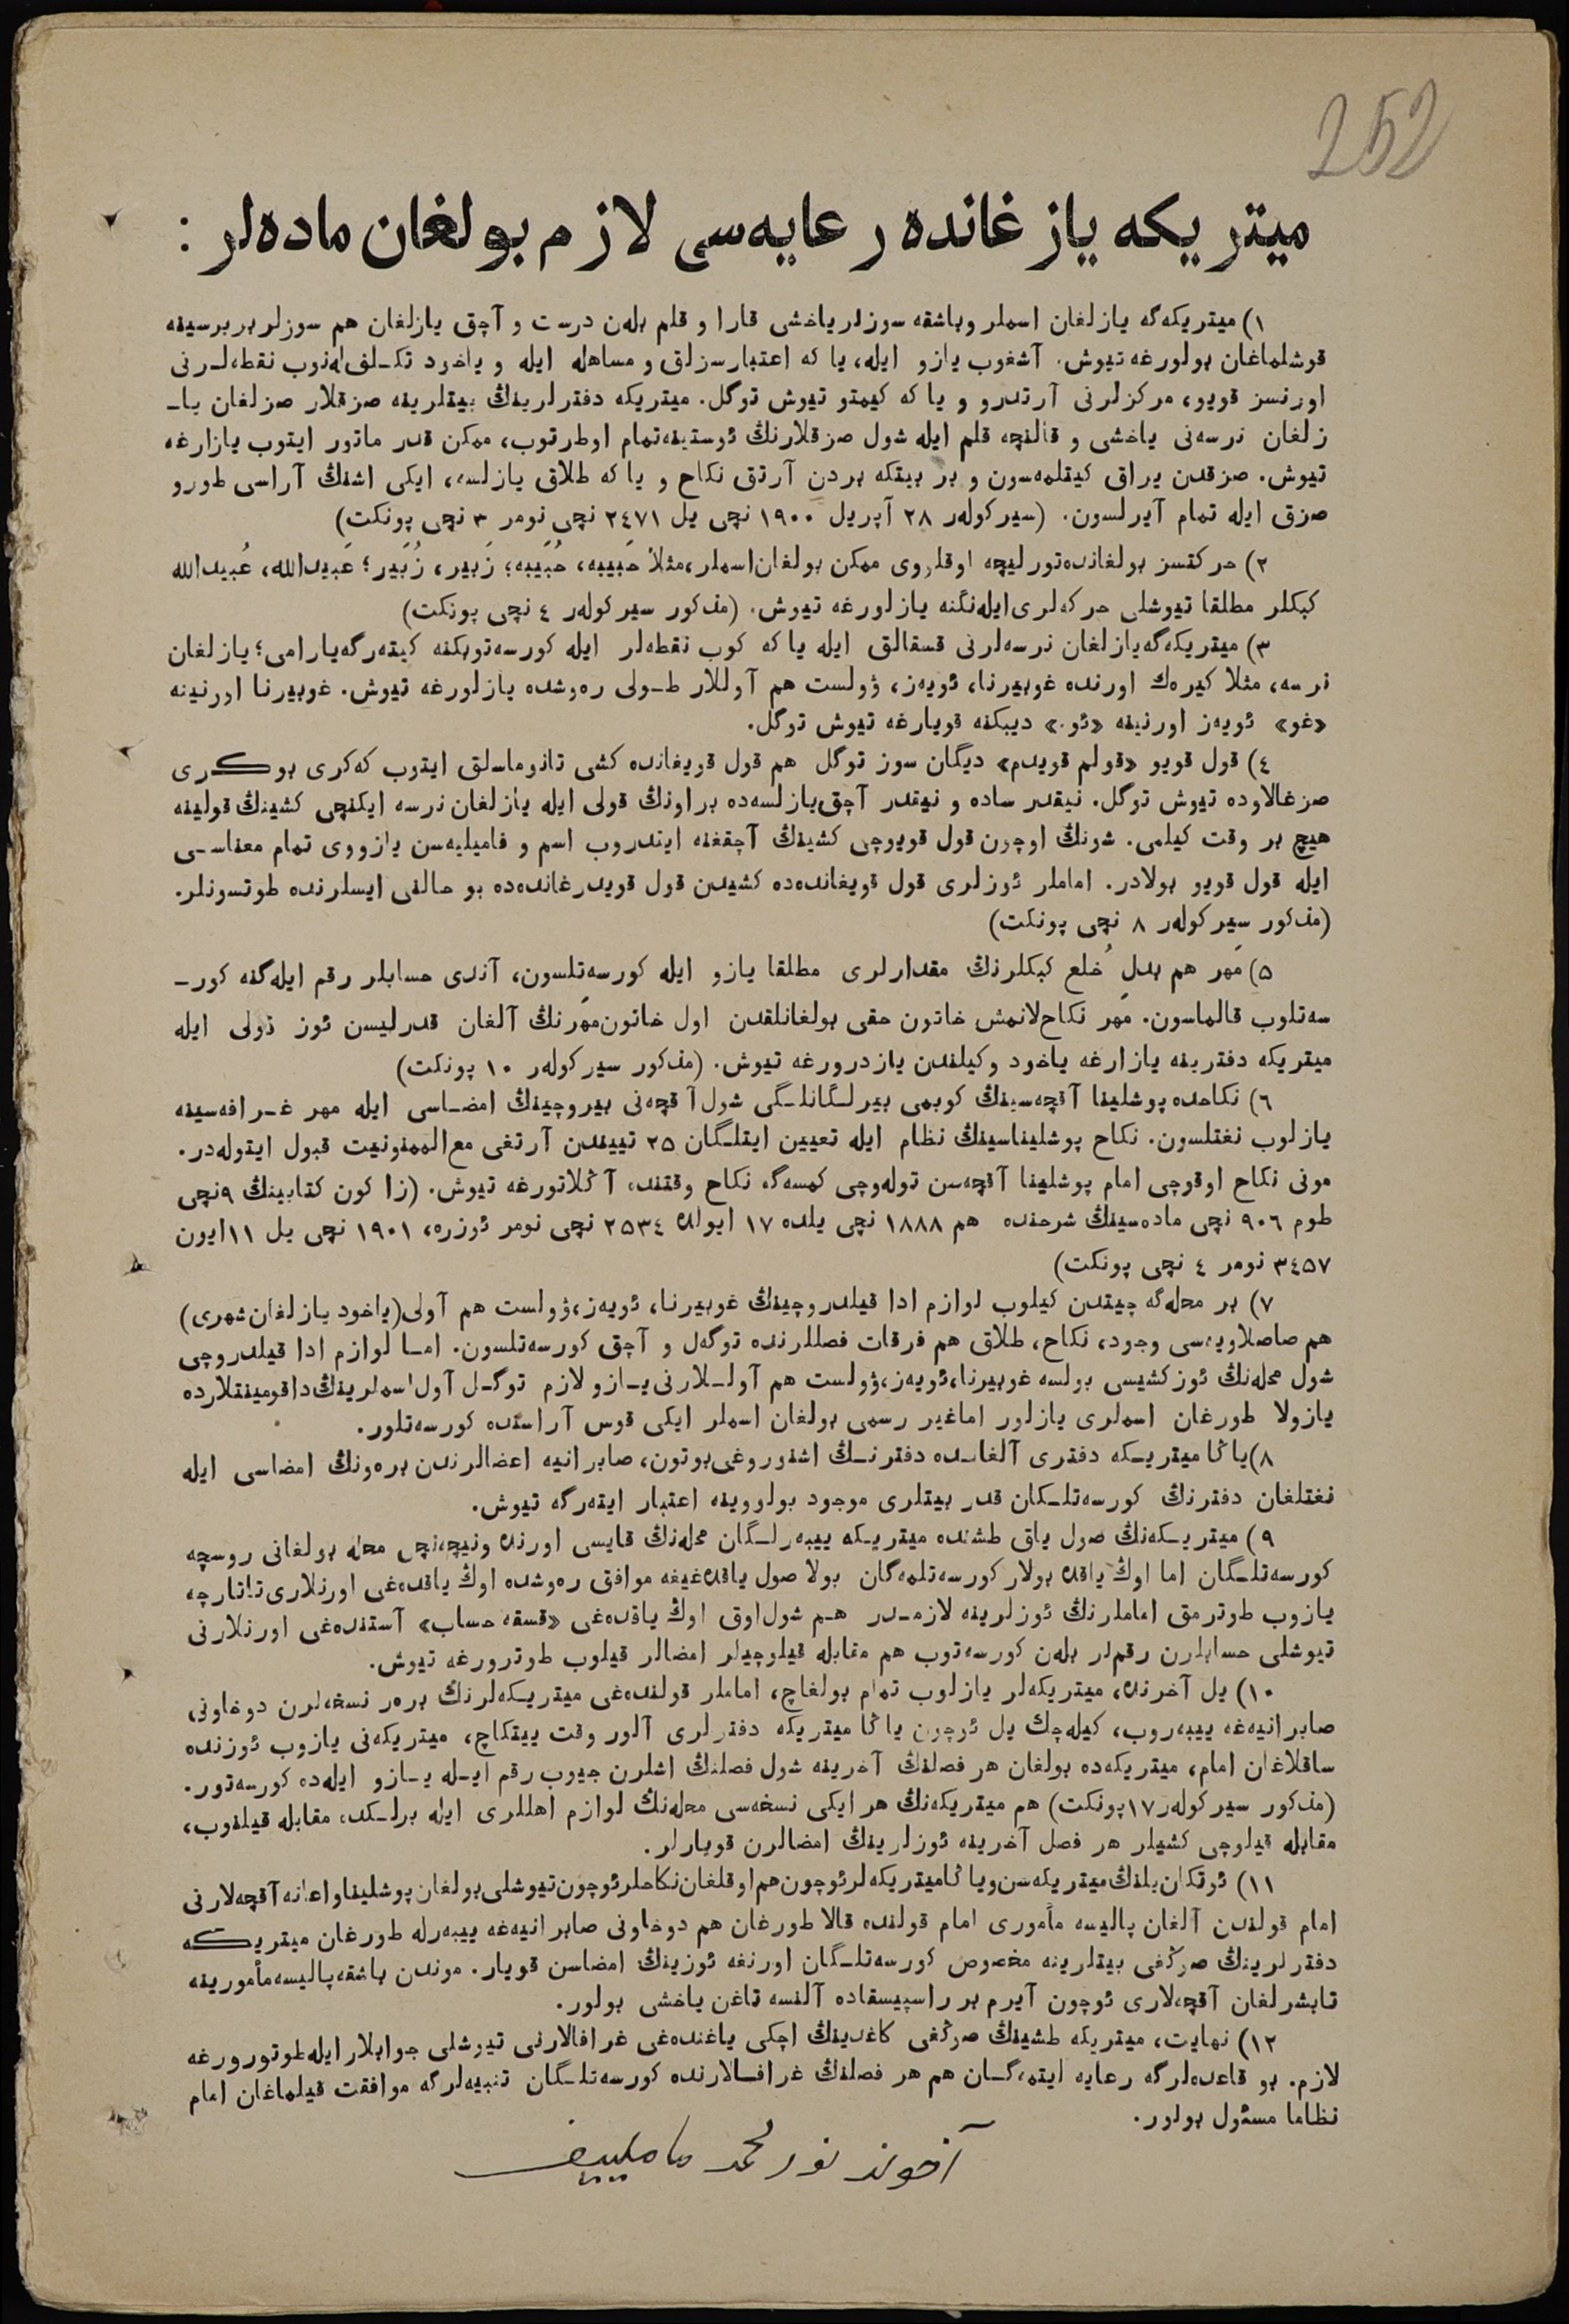 252
ميتريكه يازغانده رعايه‌سى لازم بولغان ماده‌لر :
١) ميتريكه‌گه يازلغان اسملر وباشقه سوزلر ياخشى قارا و قلم بله‌ن درست و آچق يازلغان هم سوزلر بربرسينه
قوشلماغان بولورغه تيوش. آشغوب يازو ايله، يا كه اعتبارسزلق و مساهله ايله و ياخود تكـلف‌له‌نوب نقطه‌لـرنى
اورنسز قويو، مركزلرنى آرتدرو و يا كه كيمتو تيوش توگل. ميتريكه دفترلرينڭ بيتلرينه صزقلار صزلغان يا‍ـ
زلغان نرسه‌نى ياخشى و قالنچه قلم ايله شول صزقلارنڭ ئوستينه‌تمام اوطرتوب، ممكن قدر ماتور ايتوب يازارغه
تيوش. صزقدن يراق كيتلمه‌سون و بر بيتكه بردن آرتق نكاح و يا كه طلاق يازلسه، ايكى اشنڭ آراسى طورو
صزق ايله تمام آيرلسون. (سيركولەر ٢٨ آپريل ١٩٠٠ نچى يل ٢٤٧١ نچى نومر ٣ نچى پونكت)
٢) حركتسز بولغانده‌تورليچه اوقلروى ممكن بولغان‌اسملر،مثلا حَبيبه، حُبَيبه؛ زَبير، زُبَير؛ عَبيدالله، عُبيدالله
كبكلر مطلقا تيوشلى حركه‌لرى‌ايله‌نگنه يازلورغه تيوش. (مذكور سيركولەر ٤ نچى پونكت)
٣) ميتريكه‌گه‌يازلغان نرسه‌لرنى قسقالق ايله يا كه كوب نقطه‌لر ايله كورسه‌توبكنه كيته‌رگه‌يارامى؛ يازلغان
نرسه، مثلا كيره‌ك اورنده غوبيرنا، ئويه‌ز، ۋولست هم آوللار طـولى ره‌وشده يازلورغه تيوش. غوبيرنا اورنينه
«غو» ئويه‌ز اورنينه «ئو.» ديبكنه قويارغه تيوش توگل.
٤) قول قويو «قولم قويدم» ديگان سوز توگل هم قول قويغانده كشى تانوماسلق ايتوب كه‌كرى بوكـرى
صزغالاوده تيوش توگل. نيقدر ساده و نيقدر آچق‌يازلسه‌ده براونڭ قولى ايله يازلغان نرسه ايكنچى كشينڭ قولينه
هيچ بر وقت كيلمى. شونڭ اوچون قول قويوچى كشينڭ آچقغنه ايتدروب اسم و فاميليه‌سن يازووى تمام معناسـى
ايله قول قويو بولادر. اماملر ئوزلرى قول قويغانده‌ده كشيدن قول قويدرغانده‌ده بو حالنى ايسلرنده طوتسونلر.
(مذكور سيركولەر ٨ نچى پونكت)
٥) مَهر هم بدلِ خُلع كبكلرنڭ مقدارلرى مطلقا يازو ايله كورسه‌تلسون، آندى حسابلر رقم ايله‌گنه كور‍ـ
سه‌تلوب قالماسون. مَهر نكاح‌لانمش خاتون حقى بولغانلقدن اول خاتون‌مَهرنڭ آلغان قدرليسن ئوز قولى ايله
ميتريكه دفترينه يازارغه ياخود وكيلندن يازدرورغه تيوش. (مذكور سيركولەر ١٠ پونكت)
٦) نكاحده پوشلينا آقچه‌سينڭ كوبمى بيرلـگانلـگى شول‌آقچه‌نى بيروچينڭ امضـاسى ايله مهر غـرافه‌سينه
يازلوب نغتلسون. نكاح پوشليناسينڭ نظام ايله تعيين ايتلـگان ٢٥ تييندن آرتغى مع‌الممنونيت قبول ايتوله‌در.
مونى نكاح اوقوچى امام پوشلينا آقچه‌سن توله‌وچى كمسه‌گه نكاح وقتنده آڭلاتورغه تيوش. (زاكون كتابينڭ ٩نچى
طوم ٩٠٦ نچى ماده‌سينڭ شرحنده هم ١٨٨٨ نچى يلده ١٧ ايولده ٢٥٣٤ نچى نومر ئوزره، ١٩٠١ نچى يل ١١ايون
٣٤٥٧ نومر ٤ نچى پونكت)
٧) بر محله‌گه چيتدن كيلوب لوازم ادا قيلدروچينڭ غوبيرنا، ئويه‌ز،ۋولست هم آولى(ياخود يازلغان‌شهرى)
هم صاصلاويه‌سى وجود، نكاح، طلاق هم فرقات فصللرنده توگه‌ل و آچق كورسه‌تلسون. امـا لوازم ادا قيلدروچى
شول محله‌نڭ ئوز كشيسى بولسه غوبيرنا،ئويه‌ز،ۋولست هم آولـلارنى يـازو لازم توگـل آول‌اسملرينڭ‌داقومينتلارده
يازولا طورغان اسملرى يازلور اماغير رسمى بولغان اسملر ايكى قوس آراسنده كورسه‌تلور.
٨)ياڭا ميتريـكه دفترى آلغانـده دفترنـڭ اشنوروغى‌بوتون، صابرانيه اعضالرندن بره‌ونڭ امضاسى ايله
نغتلغان دفترنڭ كورسه‌تلـكان قدر بيتلرى موجود بولووينه اعتبار ايته‌رگه تيوش.
٩) ميتريـكه‌نڭ صول ياق طشنده ميتريـكه ييبه‌رلـگان محله‌نڭ قايسى اورنده ونيچه‌نچى محله بولغانى روسچه
كورسه‌تلـگان اما اوڭ ياقده بولار كورسه‌تلمه‌گان بولا صول ياقده‌غيغه موافق ره‌وشده اوڭ ياقده‌غى اورنلارى‌تاتارچه
يازوب طوترمق اماملرنڭ ئوزلرينه لازمـدر هـم شول‌اوق اوڭ ياقده‌غى «قسقه حساب» آستنده‌غى اورنلارنى
تيوشلى حسابلرن رقم‌لر بله‌ن كورسه‌توب هم مقابله قيلوچيلر امضالر قيلوب طوترورغه تيوش.
١٠) يل آخرنده، ميتريكه‌لر يازلوب تمام بولغاچ، اماملر قولنده‌غى ميتريـكه‌لرنڭ بره‌ر نسخه‌لرن دوخاونى
صابرانيه‌غه ييبه‌روب، كيله‌چك يل ئوچون ياڭا ميتريكه دفترلرى آلور وقت ييتكاچ، ميتريكه‌نى يازوب ئوزنده
ساقلاغان امام، ميتريكه‌ده بولغان هر فصلنڭ آخرينه شول فصلنڭ اشلرن جيوب رقم ايـله يـازو ايله‌ده كورسه‌تور.
(مذكور سيركولەر١٧پونكت) هم ميتريكه‌نڭ هر ايكى نسخه‌سى محله‌نڭ لوازم اهللرى ايله برلـكده مقابله قيلنوب،
مقابله قيلوچى كشيلر هر فصل آخرينه ئوزلرينڭ امضالرن قويارلر.
١١) ئوتكان‌يلنڭ‌ميتريكه‌سن‌وياڭاميتريكه‌لرئوچون‌هم‌اوقلغان‌نكاحلرئوچون‌تيوشلى‌بولغان‌پوشليناواعانه‌آقچه‌لارنى
امام قولندن آلغان پاليسه مأمورى امام قولنده قالا طورغان هم دوخاونى صابرانيه‌غه ييبه‌رله طورغان ميتريـكه
دفترلرينڭ صوڭغى بيتلرينه مخصوص كورسه‌تلـگان اورنغه ئوزينڭ امضاسن قويار. موندن باشقه‌پاليسه‌مأمورينه
تابشرلغان آقچه‌لارى ئوچون آيرم بر راسپيسقاده آلنسه تاغن ياخشى بولور.
١٢) نهايت، ميتريكه طشينڭ صوڭغى كاغدينڭ اچكى ياغنده‌غى غرافالارنى تيوشلى جوابلار ايله‌طوتورورغه
لازم. بو قاعده‌لرگه رعايه ايتمه‌گـان هم هر فصلنڭ غرافـالارنده كورسه‌تلـگان تنبيه‌لرگه موافقت قيلماغان امام
نظاما مسئول بولور.
آخوند نورمحمد ماملييف